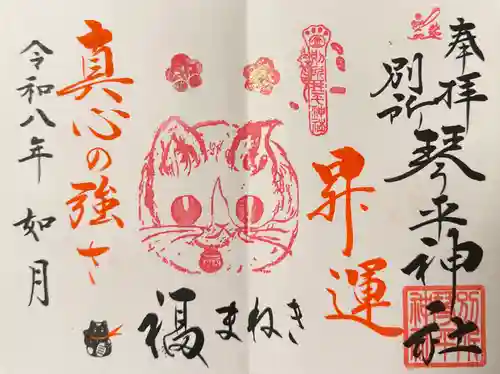 奉拝
別所琴平神社
昇運
福まねき
真心の強さ
令和八年 如月